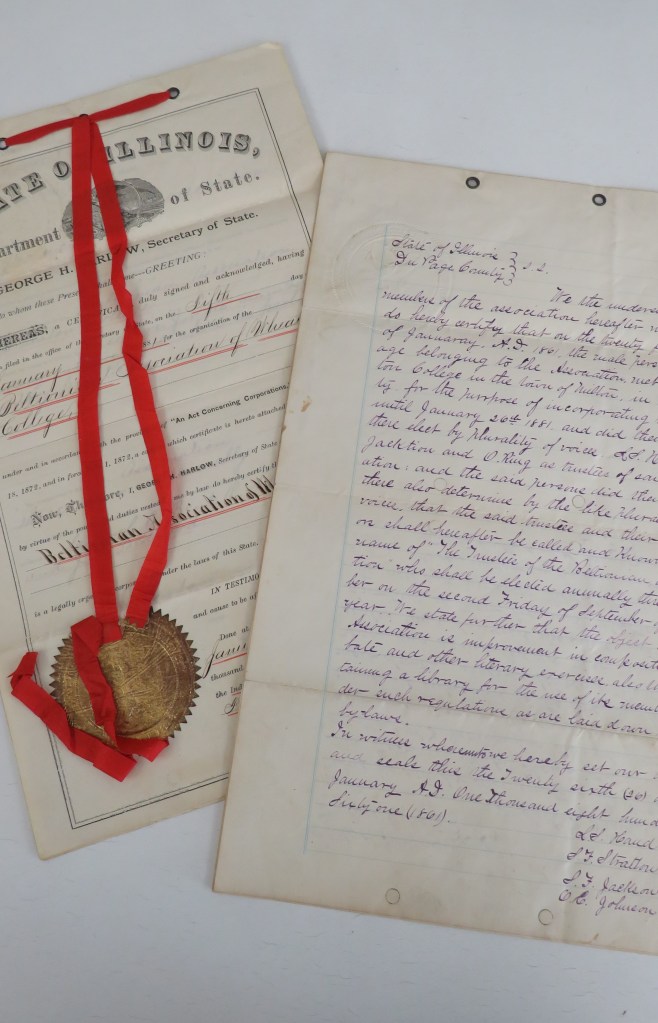 STATE OF ILLINOIS,
Department of State.
GEORGE H. HARLOW, Secretary of State.
To whom these Presents shall come—GREETING:
WHEREAS, a CERTIFICATE duly signed and acknowledged, having
been filed in the office of the Secretary of State, on the Fifth day
January for the organization of the
Beltionian Association of Wheaton
College
under and in accordance with the provisions of "An Act Concerning Corporations,"
18, 1872, and in force July 1, 1872, a copy of which certificate is hereto attached
Now, Therefore, I, GEORGE H. HARLOW, Secretary of State
by virtue of the powers and duties vested in me by law do hereby certify that
Beltionian Association of Wh
is a legally organized Corporation under the laws of this State.
IN TESTIMO
and cause to be af
Done at
Janu
thousand,
the Ind
State of Illinois } S.S.
Du Page County }
We the undersi
members of the association hereafter n
do hereby certify that on the twenty f
of Januaray A.D. 1861, the male pers
age belonging to the Association met
ton College in the town of Milton, in
ty for the purpose of incorporating
until January 26th 1881, and did then
there elect by Plurality of voice, L.S. H
Jacktion and O. King as trustees of sai
ation: and the said persons did then
there also determine by the like Plural
voice, that the said trustees and their
on shall hereafter be called and Known
name of "The Trustees of the Beltionian
tion" who shall be elected annually thr
ber on the second Friday of September,
year. We state further that the object
Association is improvement in composit
bate and other literary exercises also
taining a library for the use of its memb
der such regulations as are laid down
bylaws.
In witness whereunto we hereby set our
and seals this the Twenty sixth (26)
January A.D. One Thousand eight hund
Sixty one (1861).
L.S. Hand
S.F. Stratton
S.F. Jackson
C.E. Johnson